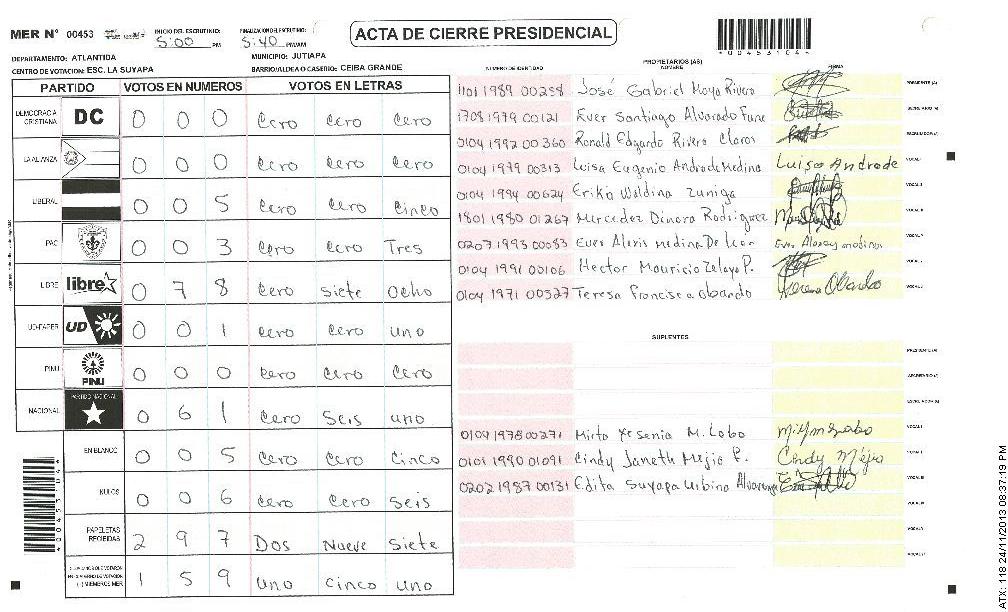 MER N° 00453
INICIO DEL ESCRUTINIO: 5:00 PM
FINALIZACION DEL ESCRUTINIO: 5:40 PM/AM
ACTA DE CIERRE PRESIDENCIAL
DEPARTAMENTO: ATLANTIDA
MUNICIPIO: JUTIAPA
CENTRO DE VOTACION: ESC. LA SUYAPA
BARRIO/ALDEA O CASERIO: CEIBA GRANDE
PARTIDO VOTOS EN NUMEROS VOTOS EN LETRAS
DEMOCRACIA CRISTIANA DC 0 0 0 Cero Cero Cero
LA ALIANZA 0 0 0 Cero Cero Cero
LIBERAL 0 0 5 Cero Cero Cinco
PAC 0 0 3 Cero Cero Tres
LIBRE libre 0 7 8 Cero Siete Ocho
UD-FAPER UD 0 0 1 Cero Cero uno
PINU PINU 0 0 0 Cero Cero Cero
NACIONAL PARTIDO NACIONAL 0 6 1 Cero Seis uno
EN BLANCO 0 0 5 Cero Cero Cinco
NULOS 0 0 6 Cero Cero Seis
PAPELETAS RECIBIDAS 2 9 7 Dos Nueve Siete
1 5 9 Uno Cinco uno
*00453104*
NUMERO DE IDENTIDAD
PROPIETARIOS (AS)
NOMBRE
FIRMA
1101 1989 00258 José Gabriel Moya Rivera PRESIDENTE (A)
1708 1979 00121 Ever Santiago Alvarado Fune SECRETARIO (A)
0104 1992 00360 Ronald Edgardo Rivera Claros ESCRUTADOR (A)
0104 1979 00313 Luisa Eugenio Andrade Medina Luisa Andrade VOCAL I
0104 1994 00624 Erika Waldina Zuniga VOCAL II
1801 1980 01267 Mercedez Dinora Rodriguez VOCAL III
0207 1993 00083 Ever Alexis Medina De Leon VOCAL IV
0104 1991 00106 Hector Mauricio Zelaya P. VOCAL V
0104 1971 00327 Teresa Francisca Obando Obando
SUPLENTES
PRESIDENTE (A)
SECRETARIO (A)
ESCRUTADOR (A)
0104 1978 00271 Mirta Yesenia M. Lobo VOCAL I
0101 1990 01091 Cindy Janeth Mejia P. Cindy Mejia VOCAL II
0202 1987 00131 Edita Suyapa Urbina Alvarenga VOCAL III
VOCAL IV
VOCAL V
*00453104*
ATX: 118 24/11/2013 08:37:19 PM